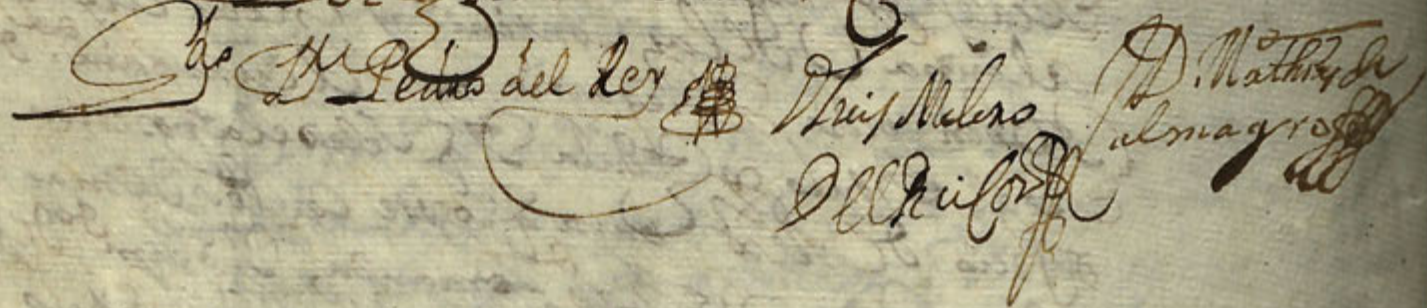 Dn Pedro del Rey
D Luis Meleno
Del Rincon
D. Mathias de
almagro